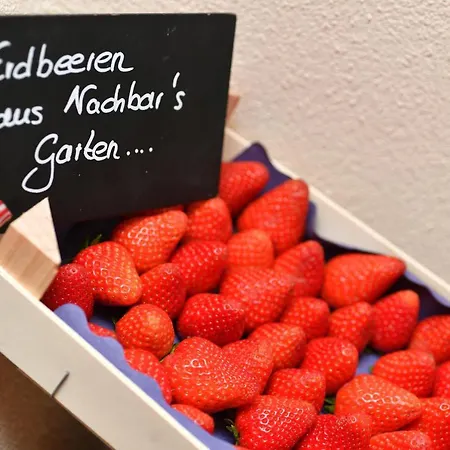 Erdbeeren
aus Nachbar's
Garten....